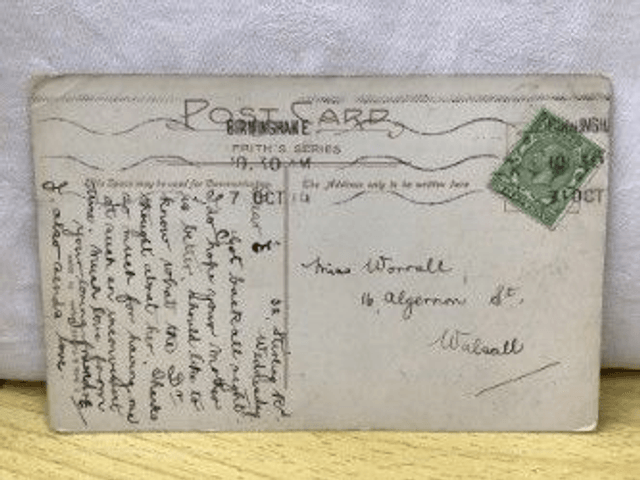 POST CARD
BIRMINGHAM E
FRITH'S SERIES
10.30 AM
7 OCT
This Space may be used for Communication
The Address only to be written here
10.30
7 OCT
Miss Worrall,
16, Algernon St,
Walsall
Wednesday
Dear
Got back all right
I do hope your mother
is better, should like to
know what the Dr
thought about her. Thanks
so much for having me
at such an inconvenient
time. Much love from
your loving friend
J. also sends love